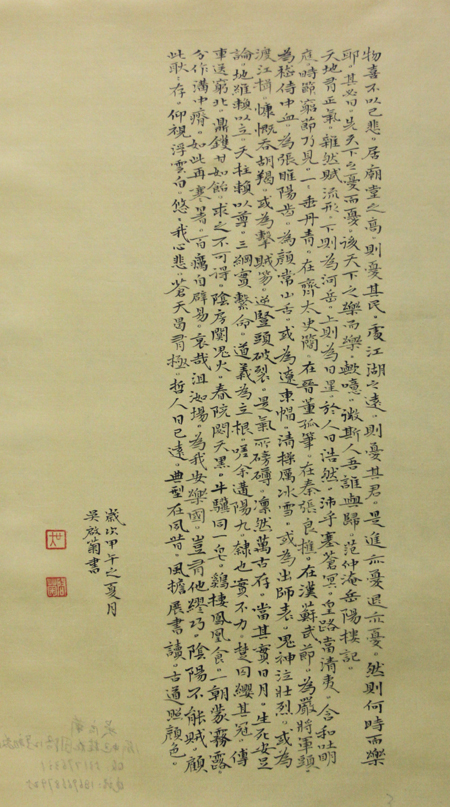 物喜不以己悲。居廟堂之高則憂其民。處江湖之遠。則憂其君。是進亦憂退亦憂。然則何時而樂
耶。其必曰。先天下之憂而憂。後天下之樂而樂。歟噫。微斯人吾誰與歸。范仲淹岳陽樓記。
天地有正氣。雜然賦流形。下則為河岳。上則為日星。於人曰浩然。沛乎塞蒼冥。皇路當清夷。含和吐明
庭。時節窮節乃見。一一垂丹青。在齊太史簡。在晉董狐筆。在秦張良椎。在漢蘇武節。為嚴將軍頭。
為嵇侍中血。為張睢陽齒。為顏常山舌。或為遼東帽。清操厲冰雪。或為出師表。鬼神泣壯烈。或為
渡江楫。慷慨吞胡羯。或為擊賊笏。逆豎頭破裂。是氣所磅礡。凜然萬古存。當其貫日月。生死安足
論。地維賴以立。天柱賴以尊。三綱實繫命。道義為立根。嗟余遘陽九。隸也實不力。楚囚纓其冠。傳
車送窮北。鼎鑊甘如飴。求之不可得。陰房闃鬼火。春院閟天黑。牛驥同一皂。鷄棲鳳凰食。一朝蒙霧露。
分作溝中瘠。如此再寒暑。百癘自辟易。哀哉沮洳場。為我安樂國。豈有他繆巧。陰陽不能賊。顧
此耿。存。仰視浮雲白。悠。我心悲。蒼天曷有極。哲人日已遠。典型在夙昔。風檐展書讀。古道照顏色。
歲次甲午之夏月
吳啟 書